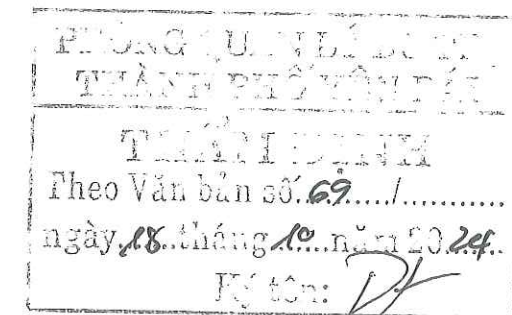 PHÒNG QUẢN LÝ ĐÔ THỊ
THÀNH PHỐ YÊN BÁI
THẨM ĐỊNH
Theo Văn bản số: 69...../...........
ngày.18..tháng.10....năm 2024...
Ký tên: